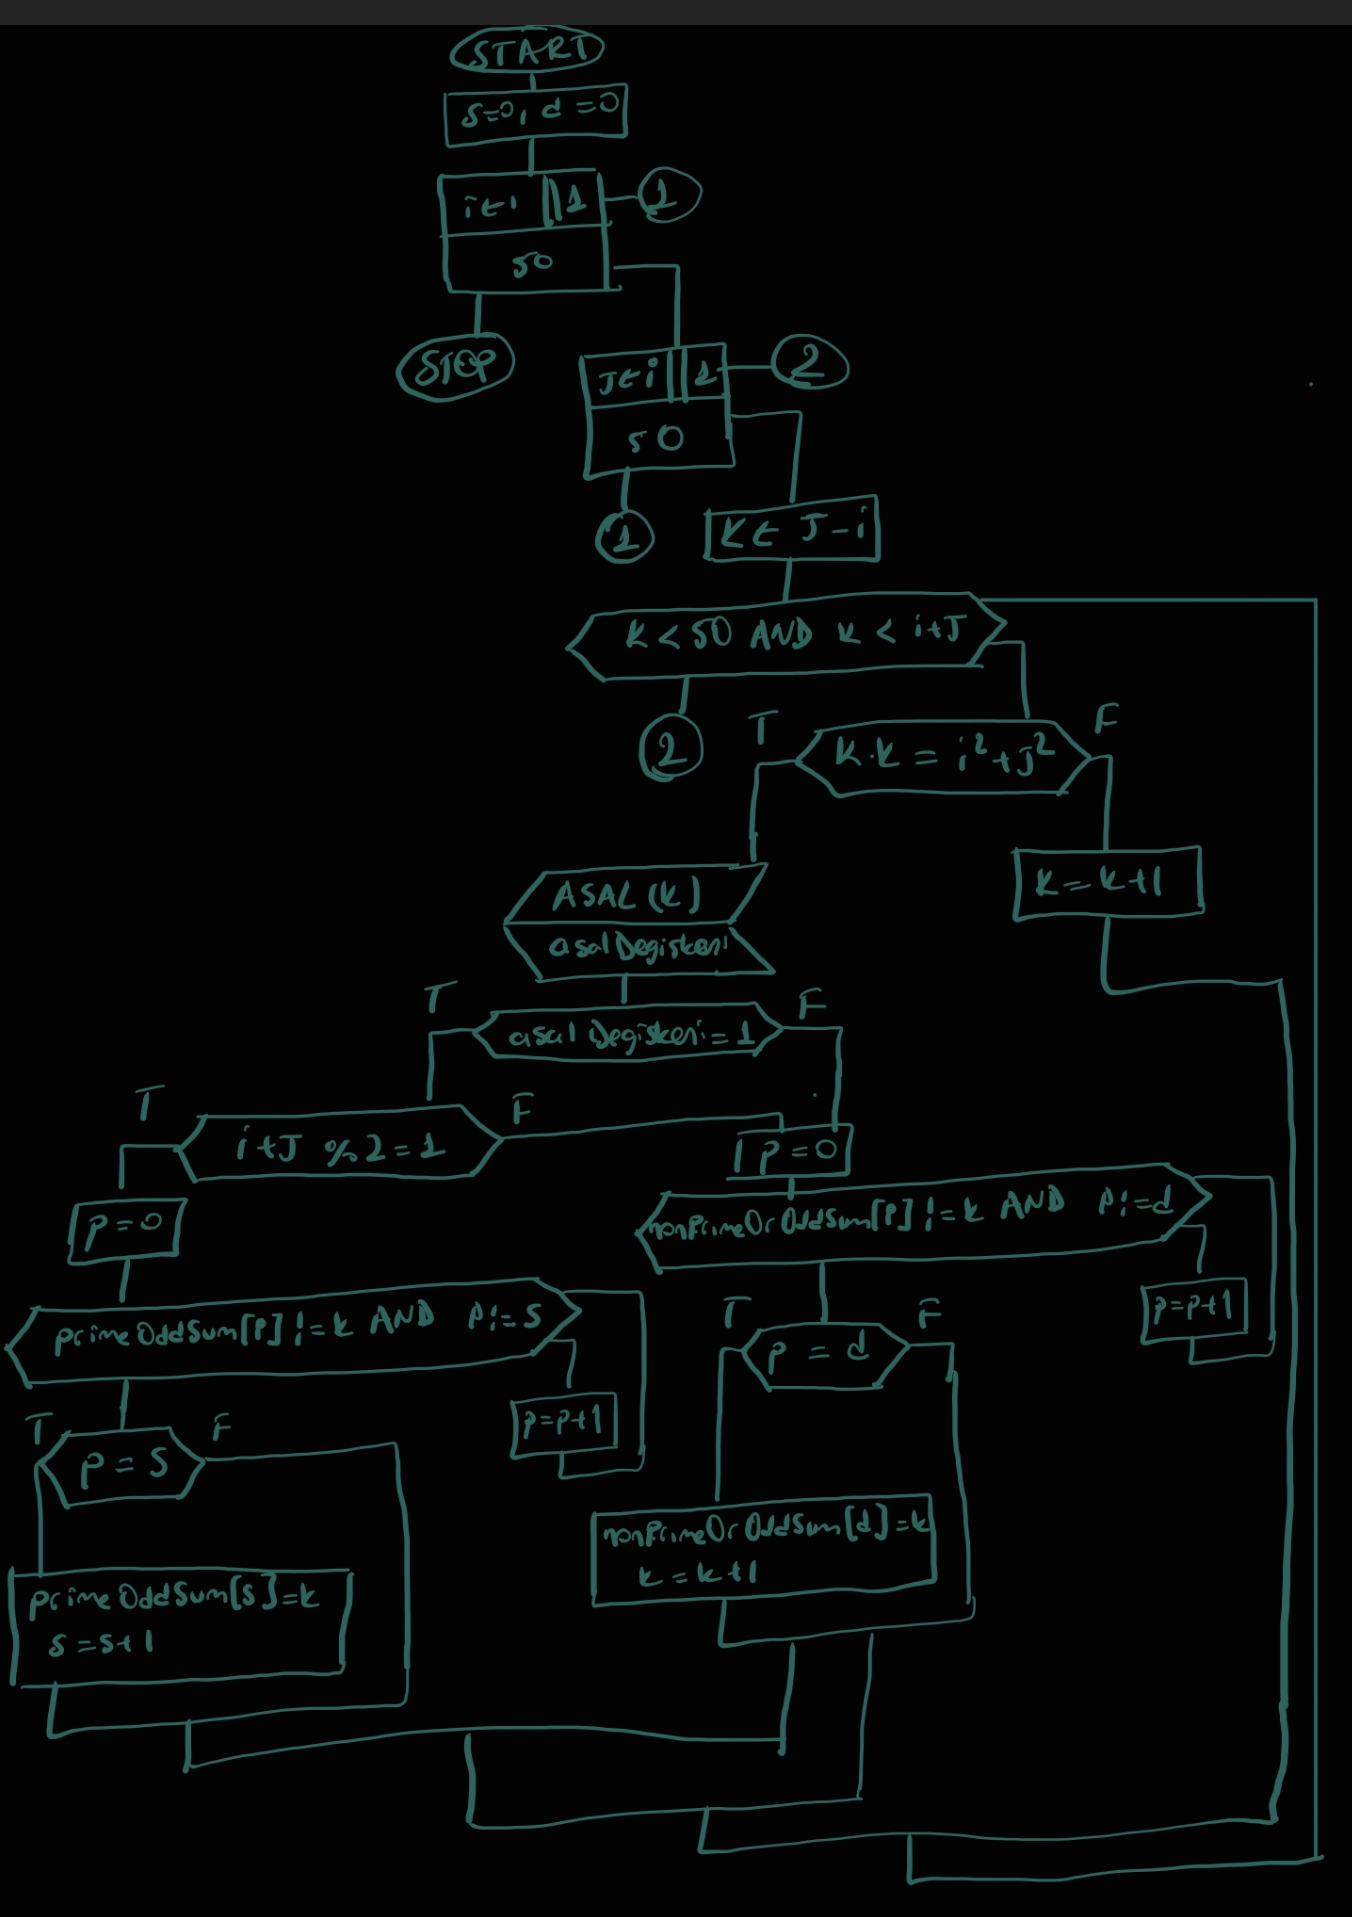 START
s=0, d=0
i←1 1
50
1
STOP
J←i 1
50
2
1
K← J-i
K < 50 AND k < i+J
2
T
K.k = i²+J²
F
K=k+1
ASAL (k)
asalDegiskeni
T
asalDegiskeni=1
F
T
i+J %2=1
F
p=0
p=0
nonPrimeOrOddSum[P] != k AND P!=d
p=p+1
primeOddSum[P] != k AND P!=S
p=p+1
T
p = d
F
T
p = S
F
nonPrimeOrOddSum[d]=k
k=k+1
primeOddSum[s]=k
s=s+1